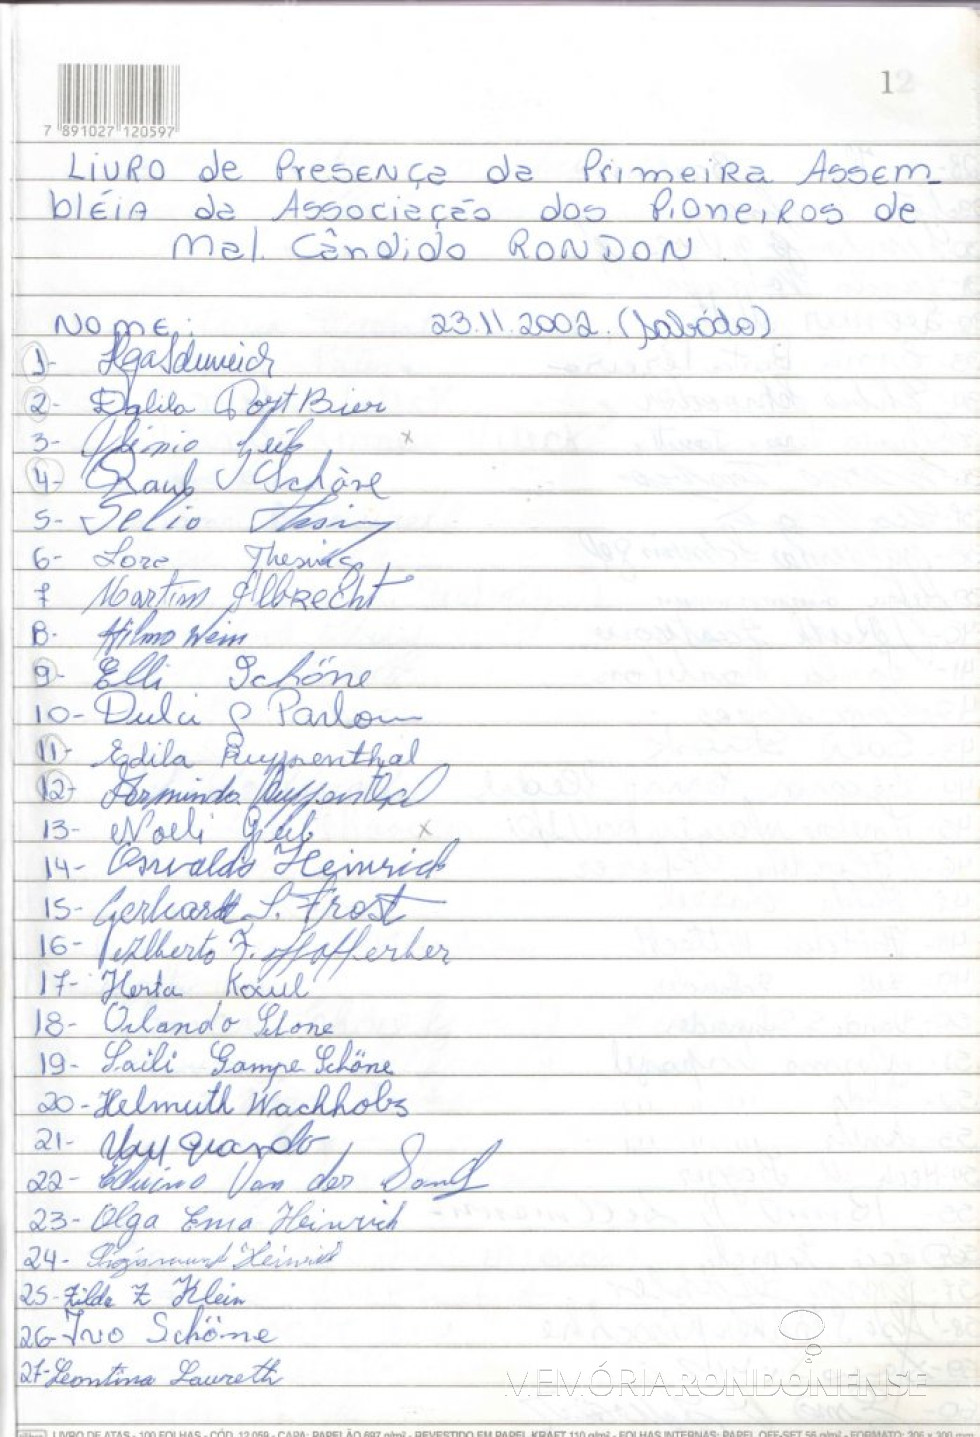 12
7 891027 120597
LIVRO de PRESENÇA da PRIMEIRA ASSEM_
bléia da Associação dos Pioneiros de
Mal. Cândido RONDON.
Nome: 23.11.2002. (sábado)
1-
2- Dalila Port Bier
3- x
4- Schöne
5- Selio
6- Lore Thesing
7 Martim Albrecht
8- Hilmo Wein
9- Elli Schöne
10- Dulci
11- Edila Ruppenthal
12- Armindo Ruppenthal
13- Noeli Geib x
14- Osvaldo Heinrich
15- Gerhardt S. Frost
16- Alberto F.
17- Herta Kaul
18- Orlando
19- Laili Gampe Schöne
20- Helmuth Wachholz
21-
22- Van der Sand
23- Olga Ema Heinrich
24- Sigismund Heinrich
25- Zilda Z Klein
26- Ivo Schöne
27- Leontina Laureth
MEMÓRIA RONDONENSE
LIVRO DE ATAS - 100 FOLHAS - CÓD. 12.059 - CAPA: PAPELÃO 697 g/m² - REVESTIDO EM PAPEL KRAFT 110 g/m² - FOLHAS INTERNAS: PAPEL OFF-SET 56 g/m² - FORMATO: 206 x 300 mm